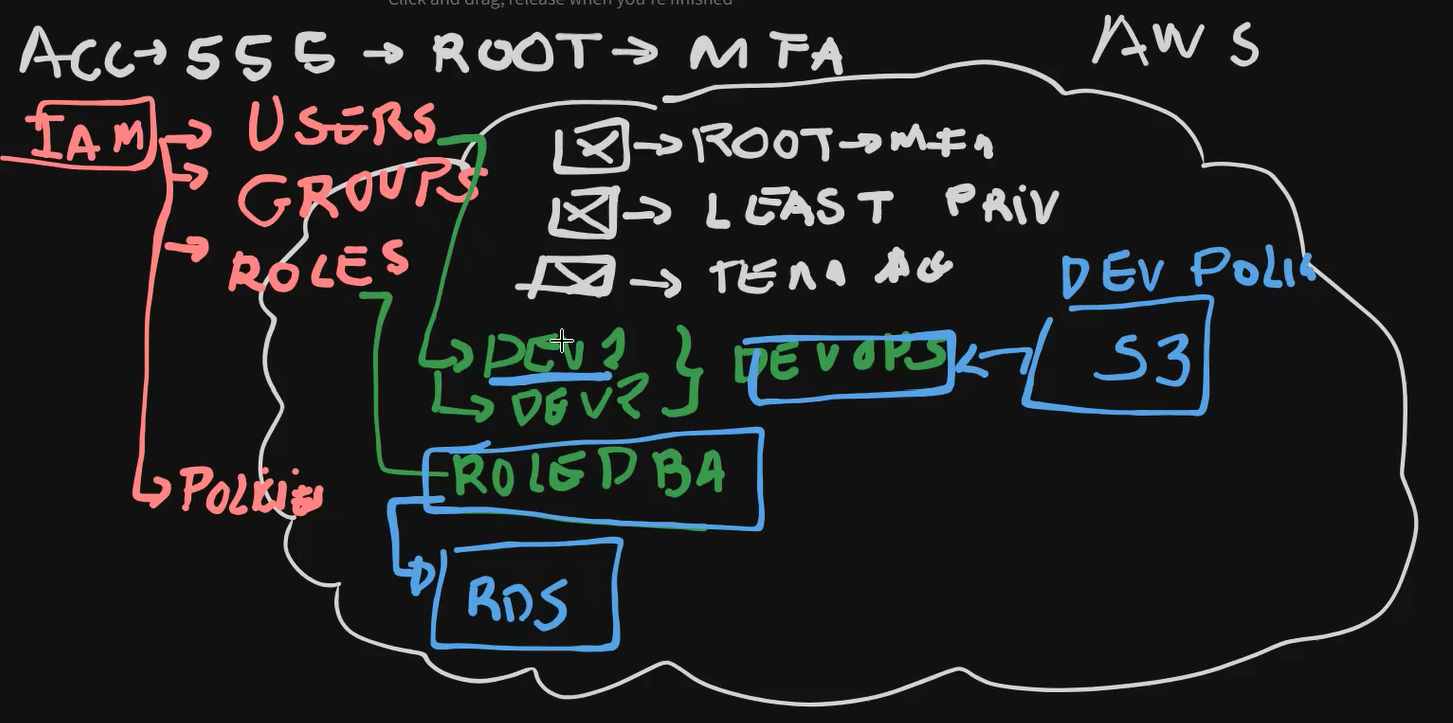 Click and drag, release when you're finished
ACC → 555 → ROOT → MFA
AWS
IAM → USERS
→ GROUPS
→ ROLES
→ ROOT → MFA
→ LEAST PRIV
→
DEV POLIC
→ DEV1
→ DEV2
DEVOPS
← S3
ROLE DBA
→ POLICIES
RDS